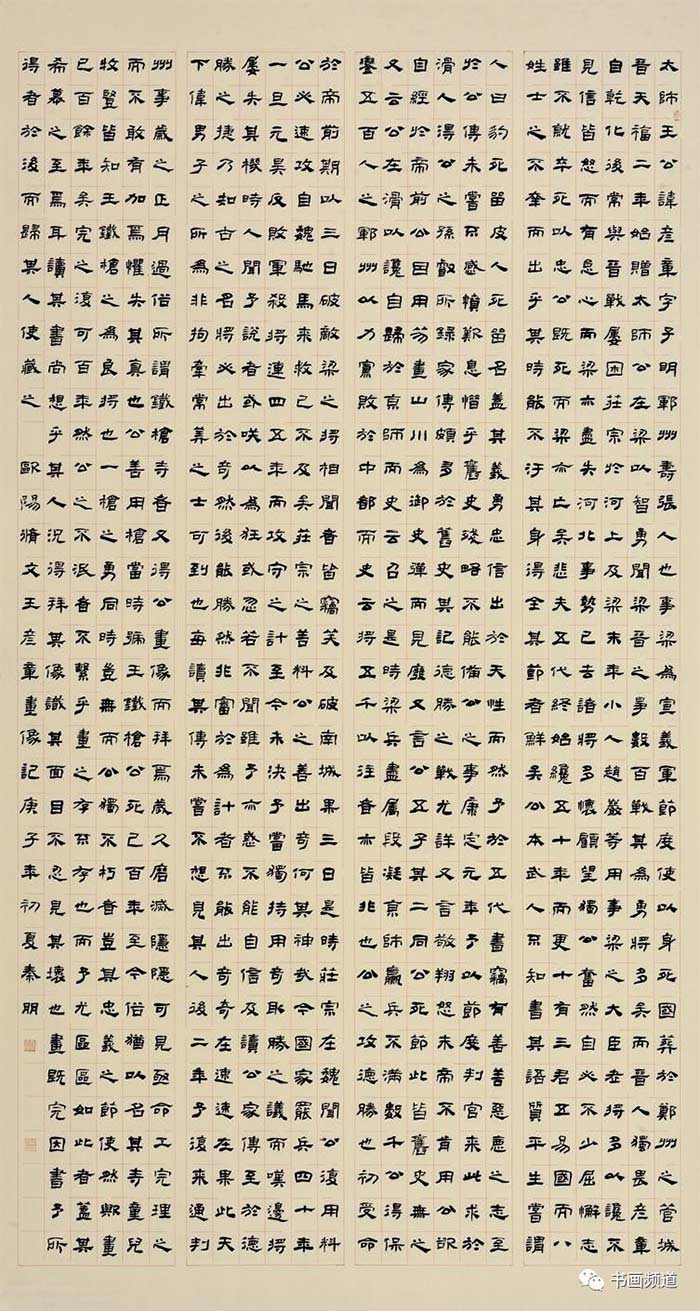 太師王公諱彦章字子明鄆州壽張人也事梁為宣義軍節度使以身死國葬於鄭州之管城
晉天福二年始贈太師公在梁以智勇聞梁晉之爭數百戰其為勇將多矣而晉人獨畏彦章
自乾化後常與晉戰屢困莊宗於河上及梁末年小人趙巖等用事梁之大臣老將多以讒不
見信皆怒而有怠心而梁亦盡失河北事勢已去諸將多懷顧望獨公奮然自必不少屈懈志
雖不就卒死以忠公既死而梁亦亡矣悲夫五代終始纔五十年而更十有三君五易國而八
姓士之不幸而出乎其時能不汙其身得全其節者鮮矣公本武人不知書其語質平生嘗謂
人曰豹死留皮人死留名蓋其義勇忠信出於天性而然予於五代書竊有善善惡惡之志至
於公傳未嘗不感憤歎息惜乎舊史殘略不能備公之事康定元年予以節度判官來此求於
滑人得公之孫叡所錄家傳頗多於舊史其記德勝之戰尤詳又言敬翔怒末帝不肯用公欲
自經於帝前公因用笏畫山川為御史彈而見廢又言公五子其二同公死節此皆舊史無之
又云公在滑以讒自歸於京師而史云召之是時梁兵盡屬段凝京師羸兵不滿數千公得保
鑾五百人之鄆州以力寡敗於中都而史云將五千以往者亦皆非也公之攻德勝也初受命
於帝前期以三日破敵梁之將相聞者皆竊笑及破南城果三日是時莊宗在魏聞公復用料
公必速攻自魏馳馬來救已不及矣莊宗之善料公之善出奇何其神哉今國家罷兵四十年
一旦元昊反敗軍殺將連四五年而攻守之計至今未決予嘗獨持用奇取勝之議而嘆邊將
屢失其機時人聞予說者或咲以為狂或忽若不聞雖予亦惑不能自信及讀公家傳至於德
勝之捷乃知古之名將必出於奇然後能勝然非審於為計者不能出奇奇在速速在果此天
下偉男子之所為非拘牽常算之士可到也每讀其傳未嘗不想見其人後二年予復來通判
州事歲之正月過俗所謂鐵槍寺者又得公畫像而拜焉歲久磨滅隱隱可見亟命工完理之
而不敢有加焉懼失其真也公善用槍當時號王鐵槍公死已百年至今俗猶以名其寺童兒
牧豎皆知王鐵槍為良將也一槍之勇同時豈無而公獨不朽者豈其忠義之節使然歟畫
已百餘年矣完之復可百年然公之不泯者不繫乎畫之存不存也而予尤區區如此者蓋其
希慕之至焉耳讀其書尚想乎其人況得拜其像識其面目不忍見其壞也畫既完因書予所
得者於後而歸其人使藏之 歐陽脩文王彦章畫像記庚子年初夏秦明
书画频道